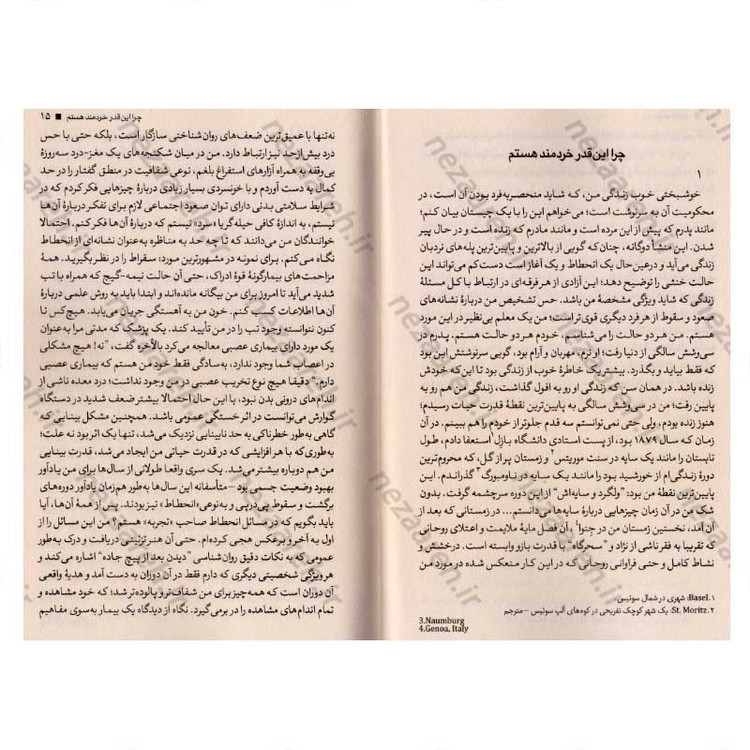 چرا این‌قدر خردمند هستم
۱
خوشبختی خوب زندگی من، که شاید منحصربه‌فرد بودن آن است، در
محکومیت آن به سرنوشت است؛ می‌خواهم این را با یک چیستان بیان کنم؛
مانند پدرم که پیش از این مرده است و مانند مادرم که زنده است و در حال پیر
شدن. این منشأ دوگانه، چنان که گویی از بالاترین و پایین‌ترین پله‌های نردبان
زندگی می‌آید و درعین‌حال یک انحطاط و یک آغاز است دست‌کم می‌تواند این
حالت خنثی را توضیح دهد؛ این آزادی از هر فرقه‌ای در ارتباط با کل مسئلهٔ
زندگی که شاید ویژگی مشخصهٔ من باشد. حس تشخیص من دربارهٔ نشانه‌های
صعود و سقوط از هر فرد دیگری قوی‌تر است؛ من یک معلم بی‌نظیر در این مورد
هستم. من هر دو حالت را می‌شناسم. خودم هر دو حالت هستم. پدرم در
سی‌وشش سالگی از دنیا رفت؛ او نرم، مهربان و آرام بود، گویی سرنوشتش این بود
که فقط بیاید و بگذرد. بیشتر یک خاطرهٔ خوب از زندگی بود تا این‌که خودش
زنده باشد. در همان سن که زندگی او رو به افول گذاشت، زندگی من هم رو به
پایین رفت؛ من در سی‌وشش سالگی به پایین‌ترین نقطهٔ قدرت حیات رسیدم؛
هنوز زنده بودم، ولی حتی نمی‌توانستم سه قدم جلوتر از خودم را هم ببینم. در آن
زمان که سال ۱۸۷۹ بود، از پست استادی دانشگاه بازل۱ استعفا دادم، طول
تابستان را مانند یک سایه در سنت موریتس۲ و زمستان پس از آن را، که محروم‌ترین
دورهٔ زندگی‌ام از خورشید بود را مانند یک سایه در ناومبورگ۳ گذراندم. این
پایین‌ترین نقطهٔ من بود: "ولگرد و سایه‌اش" از این دوره سرچشمه گرفت. بدون
شک من در آن زمان چیزهایی دربارهٔ سایه‌ها می‌دانستم... در زمستانی که بعد از
آن آمد، نخستین زمستان من در جنوا۴، آن فصل مایهٔ ملایمت و اعتلای روحانی
که تقریبا به فقر ناشی از نژاد و "سحرگاه" با قدرت بازو وابسته است. درخشش و
نشاط کامل و حتی فراوانی روحانی که در این کار منعکس شده در مورد من
۱.Basel: شهری در شمال سوئیس.
۲.St. Moritz: یک شهر کوچک تفریحی در کوه‌های آلپ سوئیس –مترجم
3.Naumburg
4.Genoa, Italy
چرا این قدر خردمند هستم ■ ۱۵
نه‌تنها با عمیق‌ترین ضعف‌های روان‌شناختی سازگار است، بلکه حتی با حس
درد بیش‌ازحد نیز ارتباط دارد. من در میان شکنجه‌های یک مغز-درد سه‌روزهٔ
بی‌وقفه به همراه آزارهای استفراغ بلغم، نوعی شفافیت در منطق گفتار را در حد
کمال به دست آوردم و با خونسردی بسیار زیادی دربارهٔ چیزهایی فکر کردم که در
شرایط سلامتی بدنی دارای توان صعود اجتماعی لازم برای تفکر دربارهٔ آن‌ها
نیستم، به اندازهٔ کافی حیله‌گر یا «سرد» نیستم که دربارهٔ آن‌ها فکر کنم. احتمالا
خوانندگان من می‌دانند که تا چه حد به مناظره به‌عنوان نشانه‌ای از انحطاط
نگاه می‌کنم. برای نمونه در مشهورترین مورد: سقراط را در نظر بگیرید. همهٔ
مزاحمت‌های بیمارگونهٔ قوهٔ ادراک، حتی آن حالت نیمه-گیج که همراه با تب
شدید می‌آید تا امروز برای من بیگانه مانده‌اند و ابتدا باید به روش علمی دربارهٔ
آن‌ها اطلاعات کسب کنم. خون من به آهستگی جریان می‌یابد. هیچ‌کس تا
کنون نتوانسته وجود تب را در من تأیید کند. یک پزشک که مدتی مرا به‌عنوان
یک مورد دارای بیماری عصبی معالجه می‌کرد بالأخره گفت، "نه! هیچ مشکلی
در اعصاب شما وجود ندارد، به‌سادگی فقط خود من هستم که بیماری عصبی
دارم." دقیقا هیچ نوع تخریب عصبی در من وجود نداشت؛ درد معده ناشی از
اندام‌های درونی بدن نبود، با این حال احتمالا بیشتر ضعف شدید در دستگاه
گوارش می‌توانست در اثر خستگی عمومی باشد. همچنین مشکل بینایی که
گاهی به‌طور خطرناکی به حد نابینایی نزدیک می‌شد، تنها یک اثر بود نه علت؛
به‌طوری‌که با هر افزایشی که در قدرت حیاتی من ایجاد می‌شد، قدرت بینایی
من هم دوباره بیشتر می‌شد. یک سری واقعا طولانی از سال‌ها برای من یادآور
بهبود وضعیت جسمی بود –متأسفانه این سال‌ها به‌طور هم‌زمان یادآور دوره‌های
برگشت و سقوط پی‌درپی و به‌نوعی «انحطاط» نیز بودند. پس از همهٔ آن‌ها، آیا
باید بگویم که در مسائل انحطاط صاحب «تجربه» هستم؟ من این مسائل را از
اول به آخر و برعکس هجی کرده‌ام. حتی آن هنر تزئینی دریافت و درک به‌طور
عمومی که به نکات دقیق روان‌شناسی "دیدن بعد از پیچ جاده" اشاره می‌کند و
هر ویژگی شخصیتی دیگری که دارم فقط در آن دوران به دست آمد و هدیهٔ واقعی
آن دوران است که همه‌چیز برای من شفاف‌تر و پالوده‌تر شد؛ که خود مشاهده و
تمام اندام‌های مشاهده را در برمی‌گیرد. نگاه از دیدگاه یک بیمار به‌سوی مفاهیم
nezaareh.ir